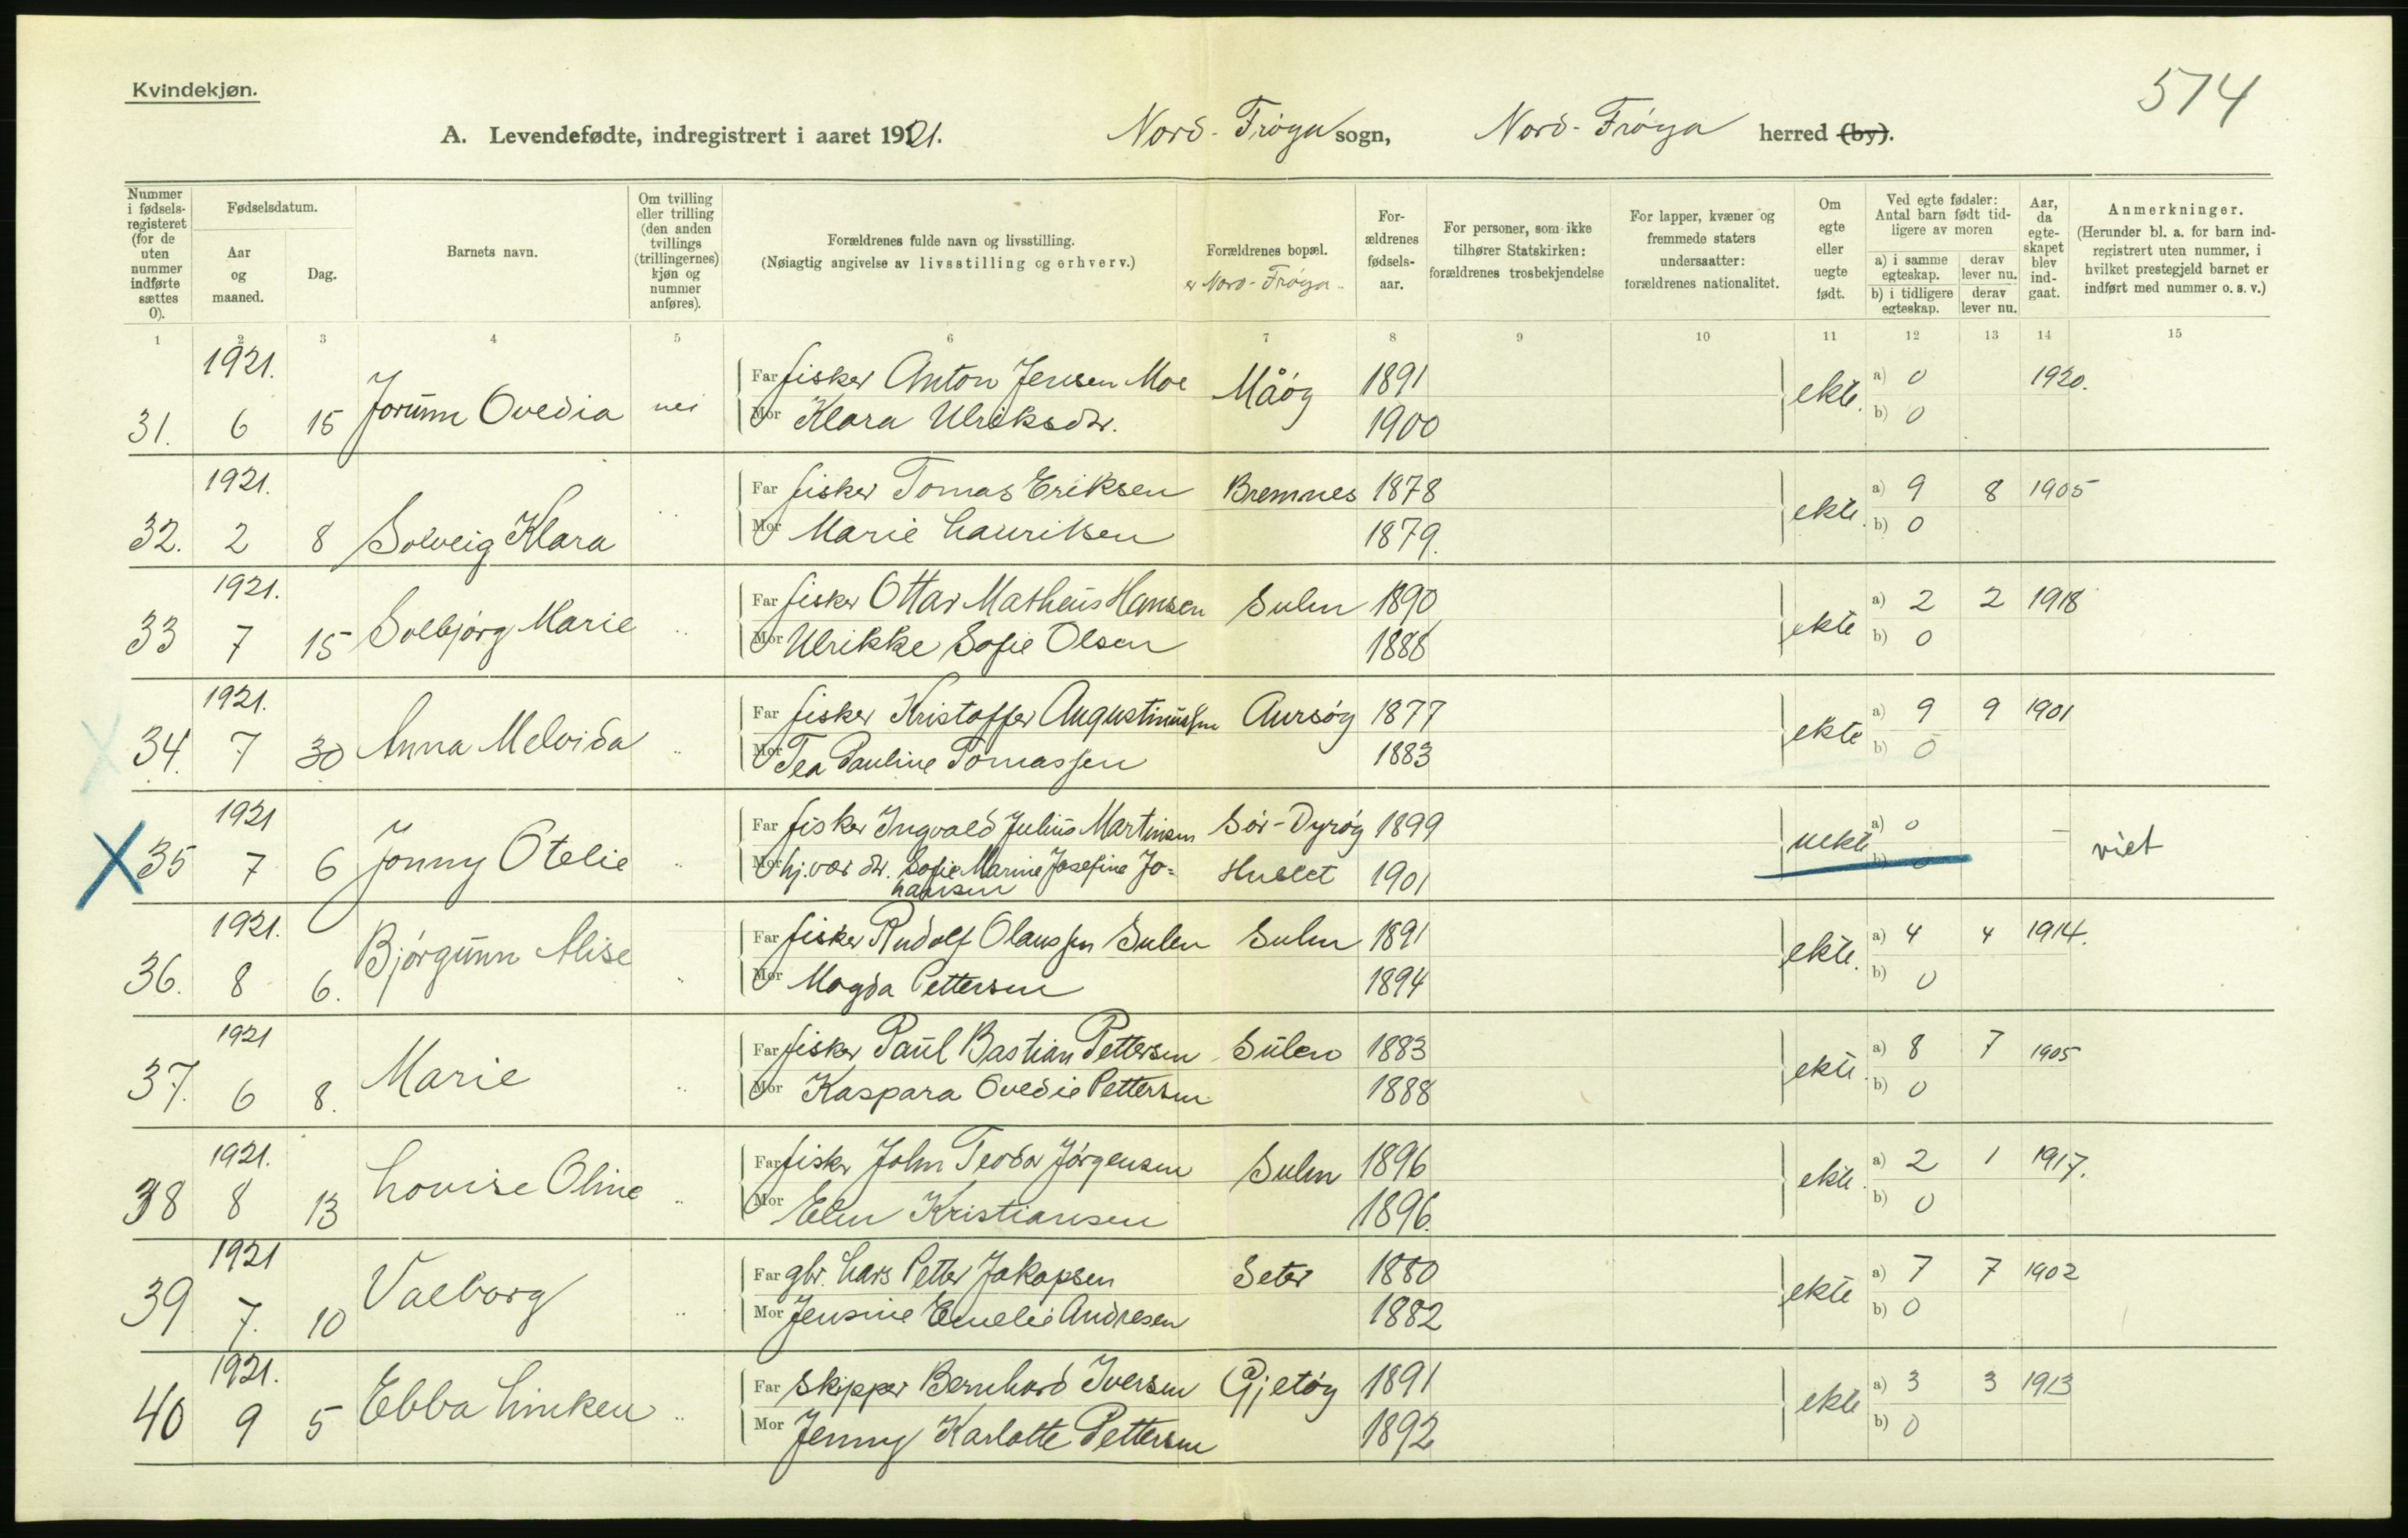 Kvindekjøn.
574
A. Levendefødte, indregistrert i aaret 1921. Nord-Frøya sogn, Nord-Frøya herred (by).
Nummer i fødsels-registeret (for de uten nummer indførte sættes 0). Fødselsdatum. Aar og maaned. Dag. Barnets navn. Om tvilling eller trilling (den anden tvillings (trillingernes) kjøn og nummer anføres). Forældrenes fulde navn og livsstilling. (Nøiagtig angivelse av livsstilling og erhverv.) Forældrenes bopæl. er Nord-Frøya.. For-ældrenes fødsels-aar. For personer, som ikke tilhører Statskirken: forældrenes trosbekjendelse For lapper, kvæner og fremmede staters undersaatter: forældrenes nationalitet. Om egte eller uegte født. Ved egte fødsler: Antal barn født tid-ligere av moren a) i samme egteskap. derav lever nu. b) i tidligere egteskap. derav lever nu. Aar, da egte-skapet blev ind-gaat. Anmerkninger. (Herunder bl. a. for barn ind-registrert uten nummer, i hvilket prestegjeld barnet er indført med nummer o. s. v.)
1 2 3 4 5 6 7 8 9 10 11 12 13 14 15
1921. Far fisker Anton Jensen Moe Måøy 1891 a) 0 1920.
31. 6 15 Jorunn Ovedia nei Mor Klara Ulriksdtr. 1900 ekte. b) 0
1921. Far fisker Tomas Eriksen Bremnes 1878 a) 9 8 1905
32. 2 8 Solveig Klara .. Mor Marie Lauritsen 1879. ekte. b) 0
1921. Far fisker Ottar Matheus Hansen Sulen 1890 a) 2 2 1918
33 7 15 Solbjørg Marie .. Mor Ulrikke Sofie Olsen 1888 ekte b) 0
1921. Far fisker Kristoffer Augustinussen Aursøy 1877 a) 9 9 1901
34. 7 30 Anna Melvida .. Mor Tea Pauline Tomassen 1883 ekte b) 0
1921 Far fisker Ingvald Julius Martinsen Sør-Dyrøy 1899 a) 0 –
X 35 7 6 Jonny Otelie .. Mor hj.vær. dtr. Sofie Marine Josefine Jo=hansen 1901 uekte b) 0
1921. Far fisker Rudolf Olaussen Sulen Sulen 1891 a) 4 4 1914.
36. 8 6. Bjørgunn Alise .. Mor Magda Pettersen 1894 ekte. b) 0
1921 Far fisker Paul Bastian Pettersen Sulen 1883 a) 8 7 1905
37. 6 8. Marie .. Mor Kaspara Ovedie Pettersen 1888 ekte. b) 0
1921. Far fisker John Teodor Jørgensen Sulen 1896 a) 2 1 1917.
38 8 13 Lovise Oline .. Mor Elen Kristiansen 1896. ekte. b) 0
1921 Far gbr. Lars Petter Jakopsen Seter 1880 a) 7 7 1902
39 7. 10 Valborg .. Mor Jensine Emelie Andresen 1882 ekte b) 0
1921. Far skipper Bernhard Iversen Gjetøy 1891 a) 3 3 1913
40 9 5 Ebba Linken .. Mor Jenny Karlotte Pettersen 1892 ekte b) 0